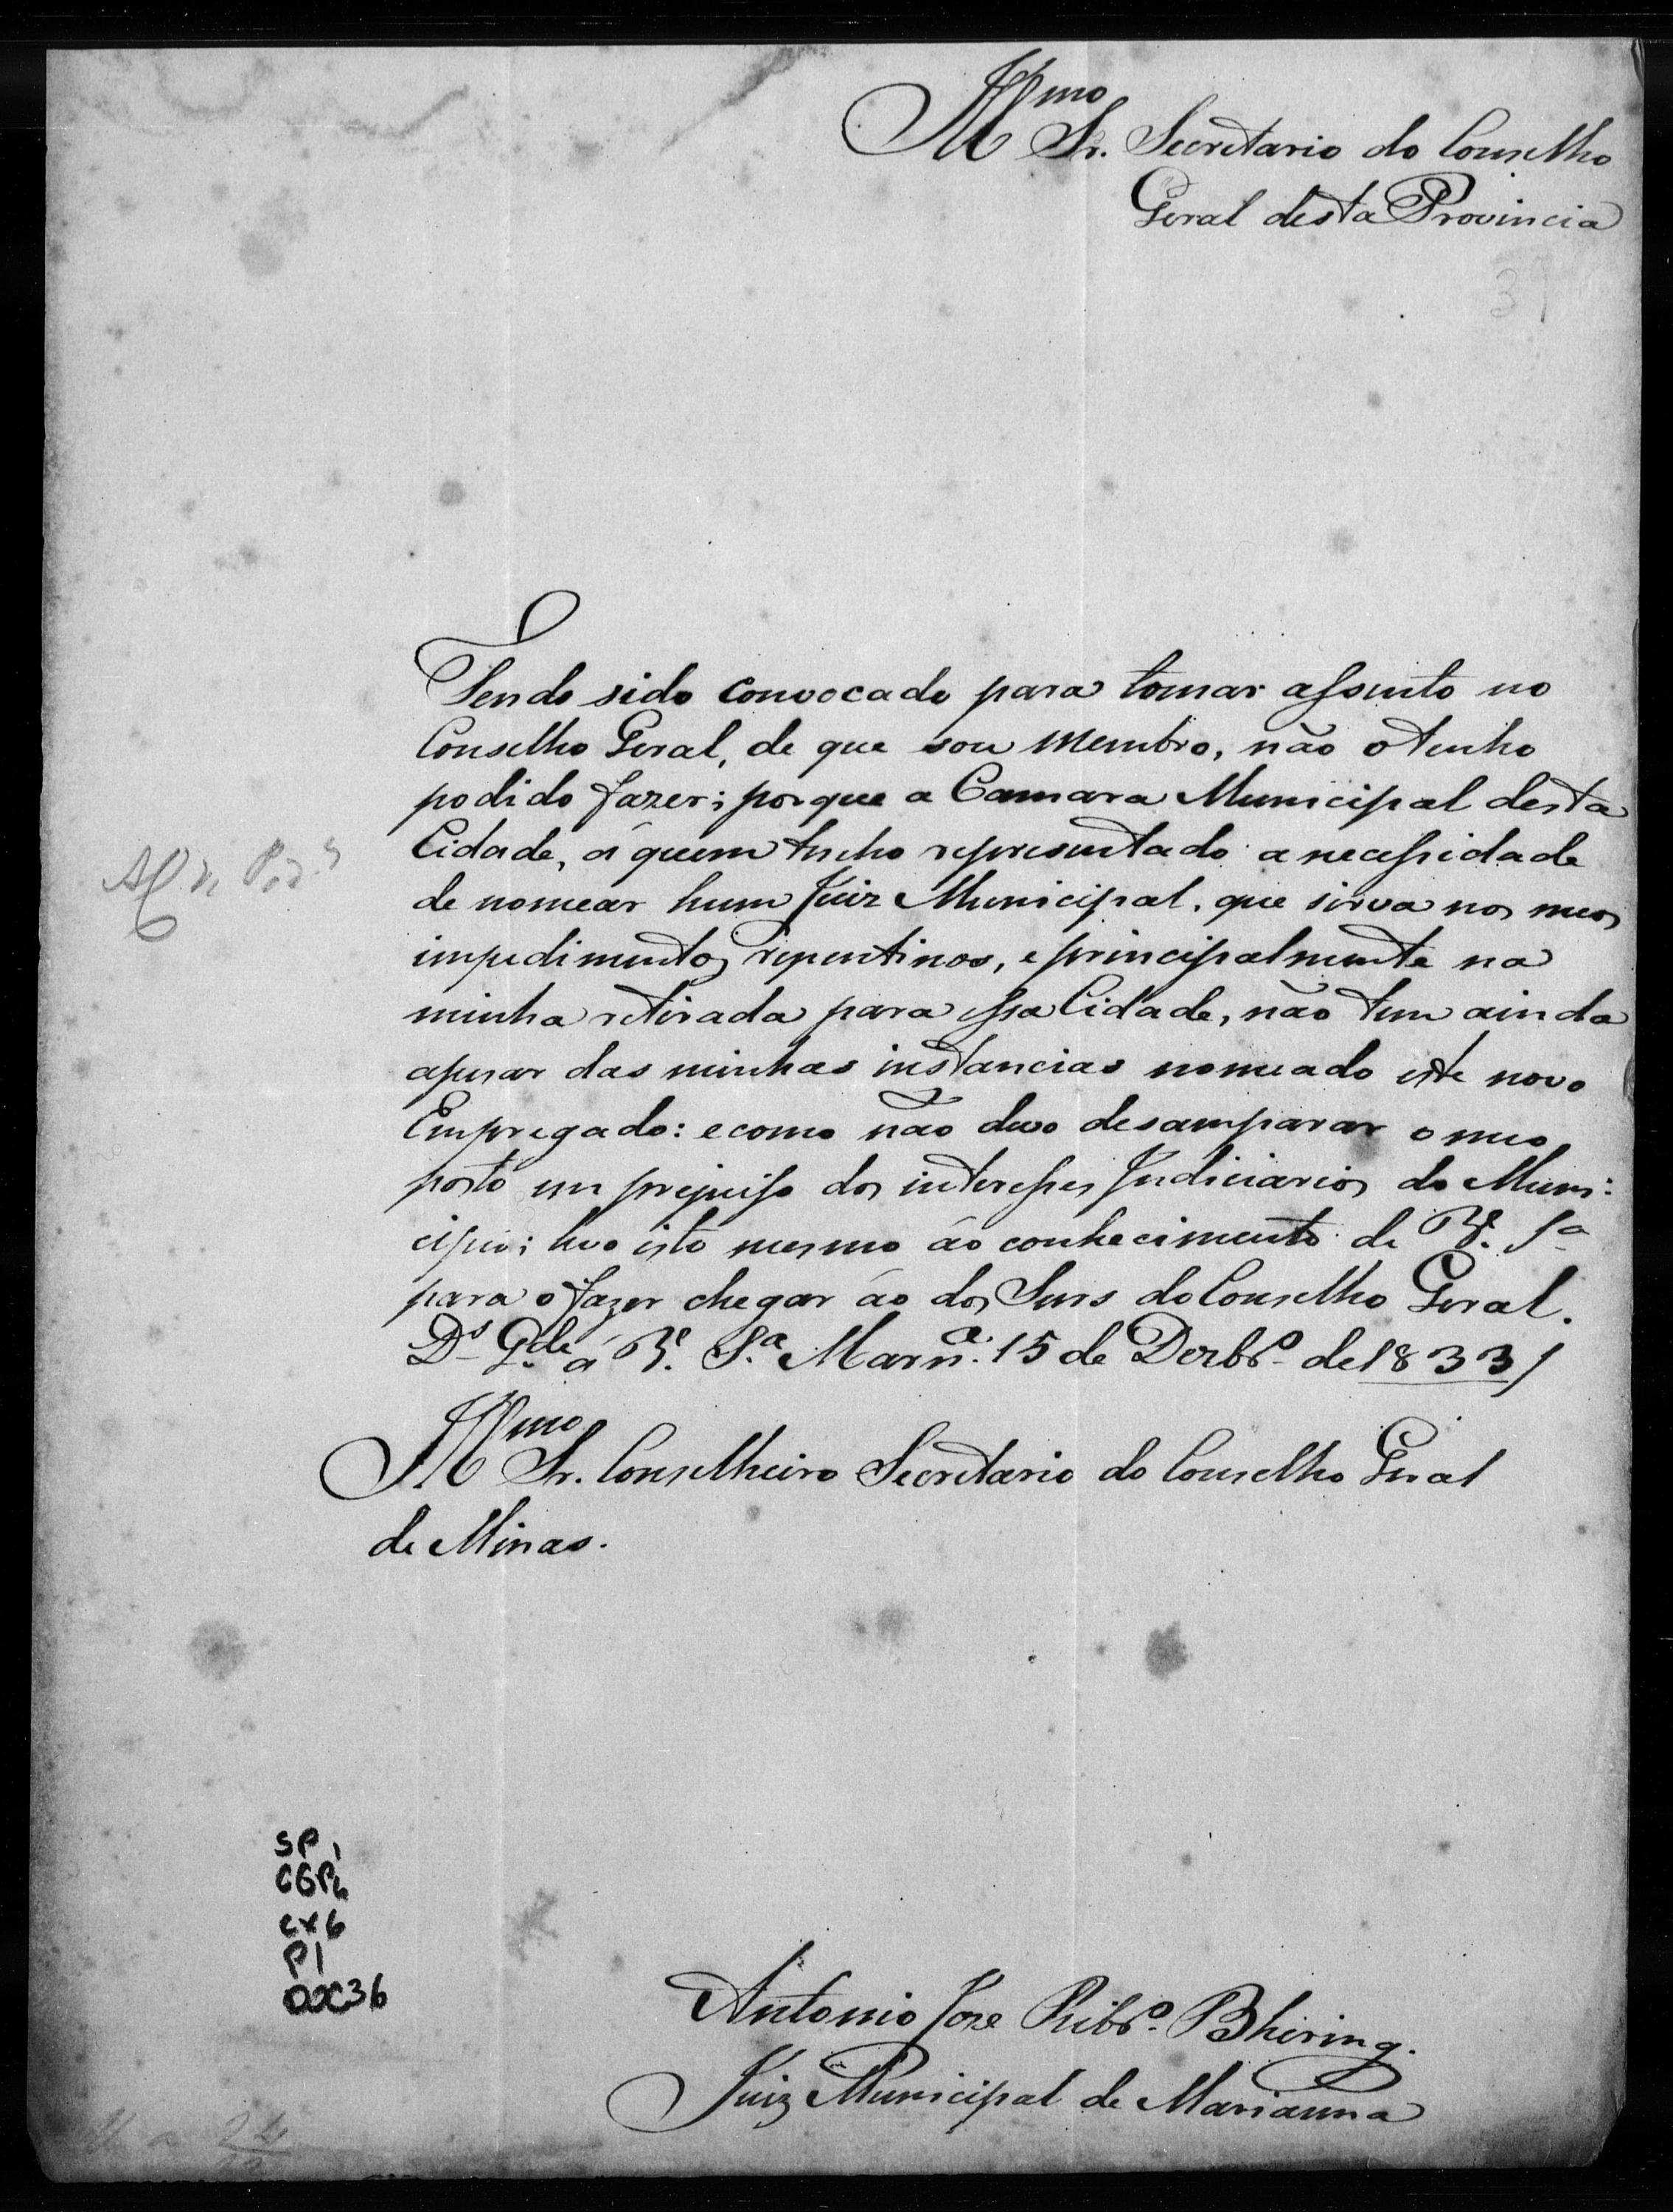 Illmo Sr. Secretario do Conselho
Geral desta Provincia
39
Tendo sido convocado para tomar assento no
Conselho Geral, de que sou membro, não o tenho
podido fazer; porque a Camara Municipal desta
Cidade, á quem tenho representado a necessidade
de nomear hum Juiz Municipal, que sirva nos meos
impedimentos repentinos, e principalmente na
minha retirada para essa Cidade, não tem ainda
apesar das minhas instancias nomeado este novo
Empregado: e como não devo desamparar o meo
posto em prejuiso dos interesses Judiciarios do Muni:
cipio; levo isto mesmo áo conhecimento de V. Sa
para o fazer chegar áo dos Snrs do Conselho Geral.
Ds Gde á V. Sa. Marna. 15 de Dezbro. de 1833/
Illmo Sr. Conselheiro Secretario do Conselho Geral
de Minas.
SP,
CGP,
cx6
P1
DOC36
Antonio Joze Ribro. Bhering.
Juiz Municipal de Marianna